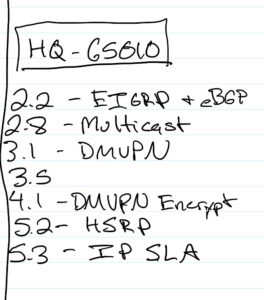 HQ-GS010
2.2 - EIGRP + eBGP
2.8 - Multicast
3.1 - DMVPN
3.5
4.1 - DMVPN Encrypt
5.2 - HSRP
5.3 - IP SLA